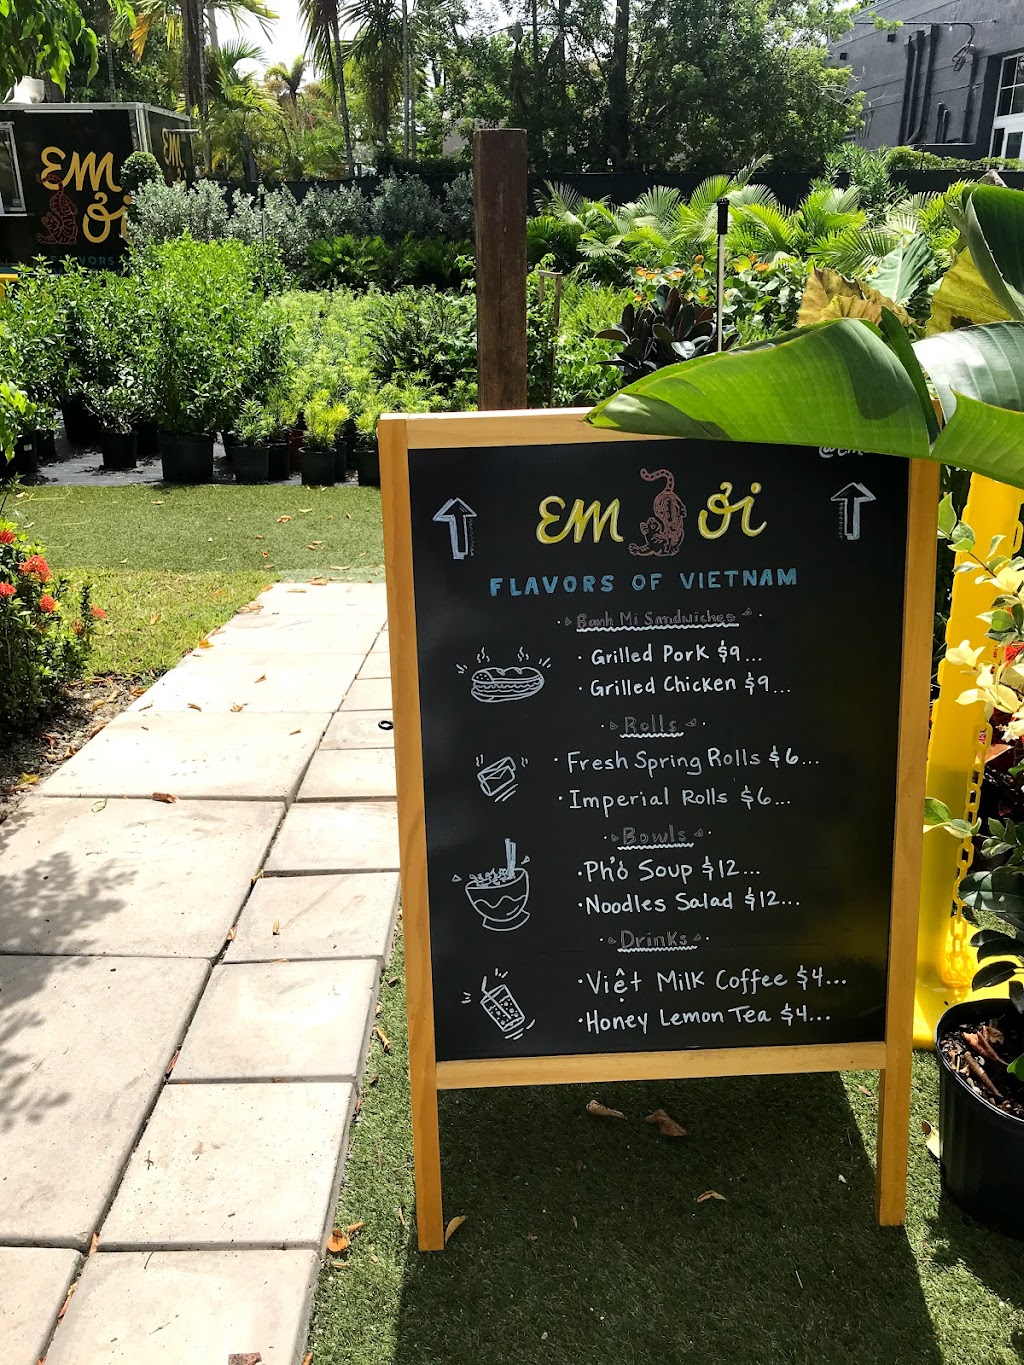 EM ƠI
EM
EM ƠI
FLAVORS OF VIETNAM
Banh Mi Sandwiches
· Grilled Pork $9...
· Grilled Chicken $9...
Rolls
· Fresh Spring Rolls $6...
· Imperial Rolls $6...
Bowls
· Phở Soup $12...
· Noodles Salad $12...
Drinks
· Việt Milk Coffee $4...
· Honey Lemon Tea $4...